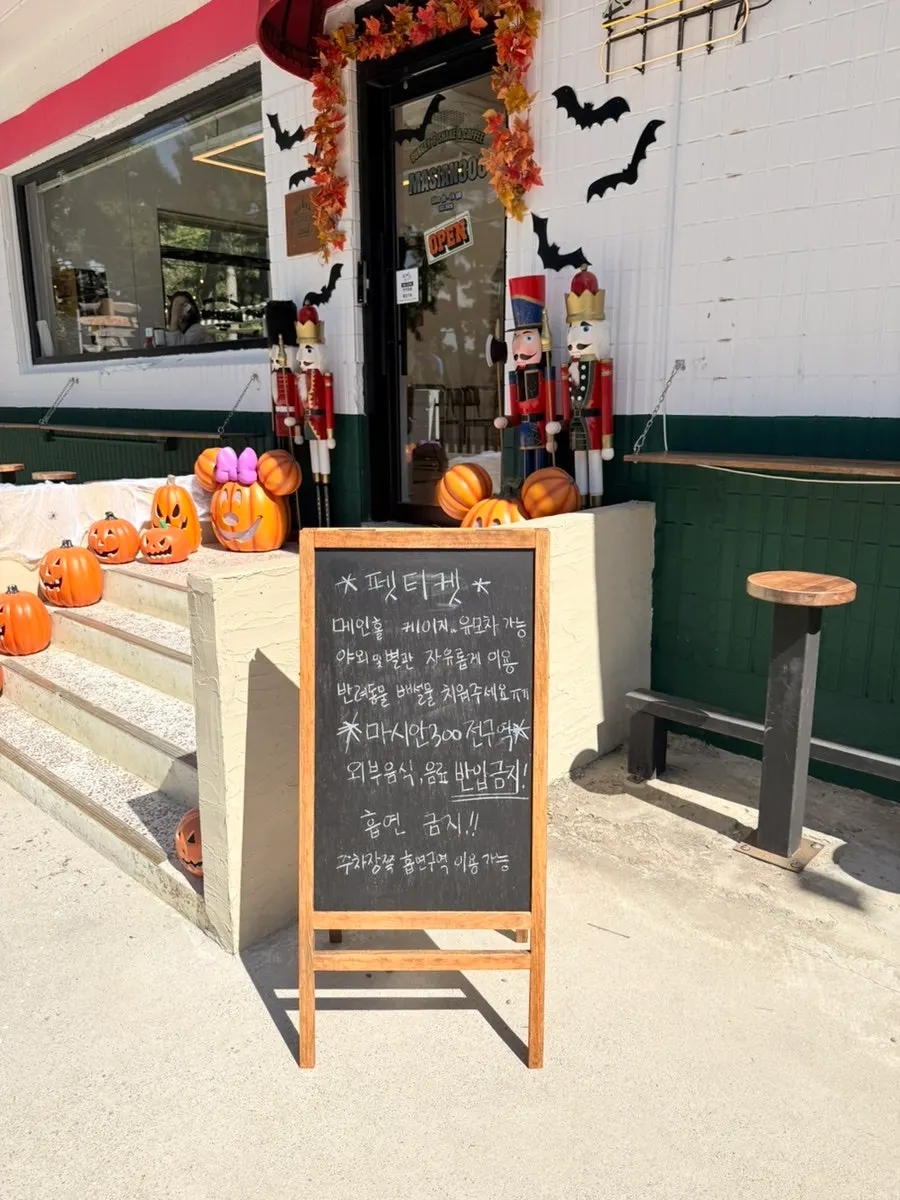 MASIAN300
OPEN
* 펫티켓 *
메인홀 케이지, 유모차 가능
야외 및 별관 자유롭게 이용
반려동물 배설물 치워주세요ㅠㅠ
*마시안300 전구역*
외부음식, 음료 반입금지!
흡연 금지!!
주차장쪽 흡연구역 이용 가능